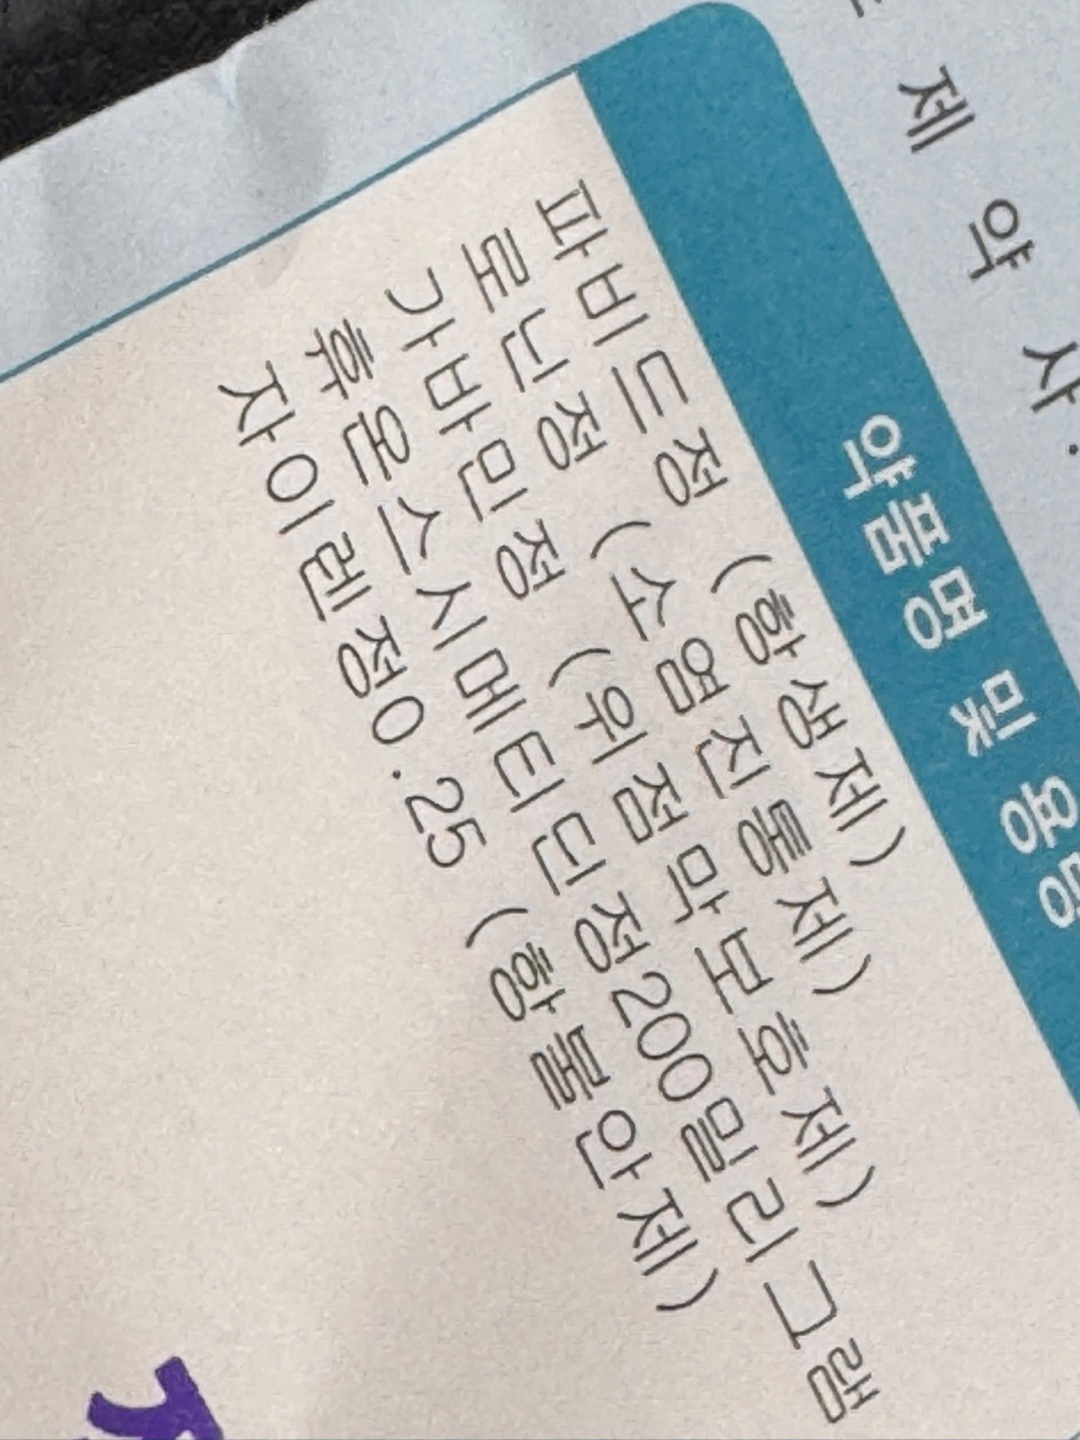 제 약 사
약품명 및 용
파비드정 (항생제)
로닌정 (소염진통제)
가바민정 (위점막보호제)
휴온스시메티딘정200밀리그램
자이렌정0.25 (항불안제)